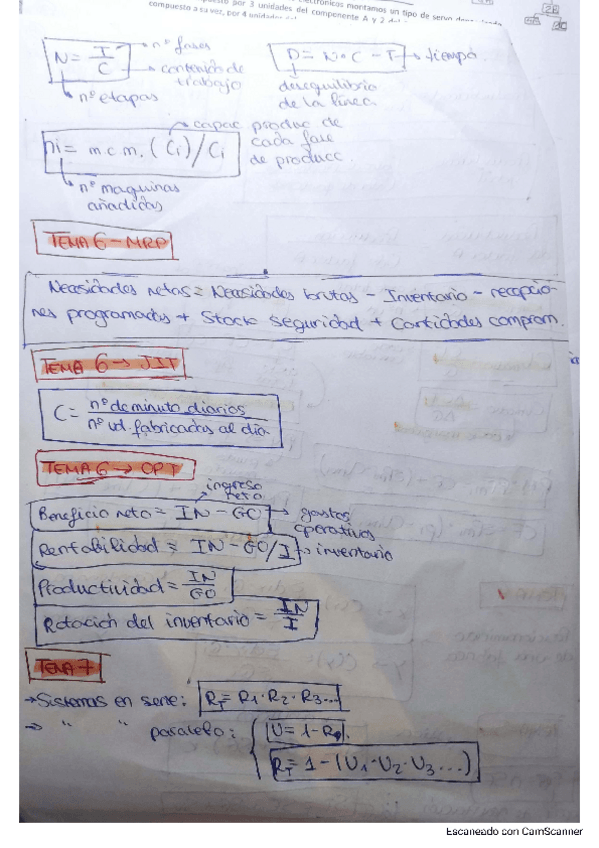 por 3 unidades del componente A y 2 del
compuesto a su vez, por 4 unidades del
N = I/C → nº fases
→ contenido de trabajo
↳ nº etapas
D = N · C - T → tiempo
desequilibrio de la línea
ni = m.c.m. (Ci)/Ci → capac produc de cada fase de producc.
↳ nº maquinas añadidas
TEMA 6 - MRP
Necesidades netas = Necesidades brutas - Inventario - recepcio-
nes programadas + Stock seguridad + Cantidades comprom.
TEMA 6 → JIT
C = nº de minuto diarios / nº ud. fabricadas al día.
TEMA 6 → OPT
ingreso neto
Beneficio neto = IN - GO → gastos operativos
Rentabilidad = IN - GO/I → inventario
Productividad = IN/GO
Rotación del inventario = IN/I
TEMA 7
→ Sistemas en serie: RT = R1 · R2 · R3...
→ " " paralelo: U = 1 - Rp.
RT = 1 - (U1 · U2 · U3...)
Escaneado con CamScanner